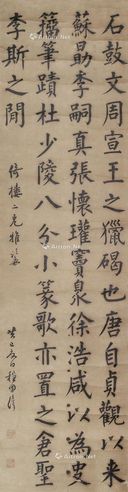 石鼓文周宣王之獵碣也唐自貞觀以来
蘇勗李嗣真張懷瓘竇泉徐浩咸以為史
籀筆蹟杜少陵八分小篆歌亦置之倉聖
李斯之間
倚樓二兄雅鑒